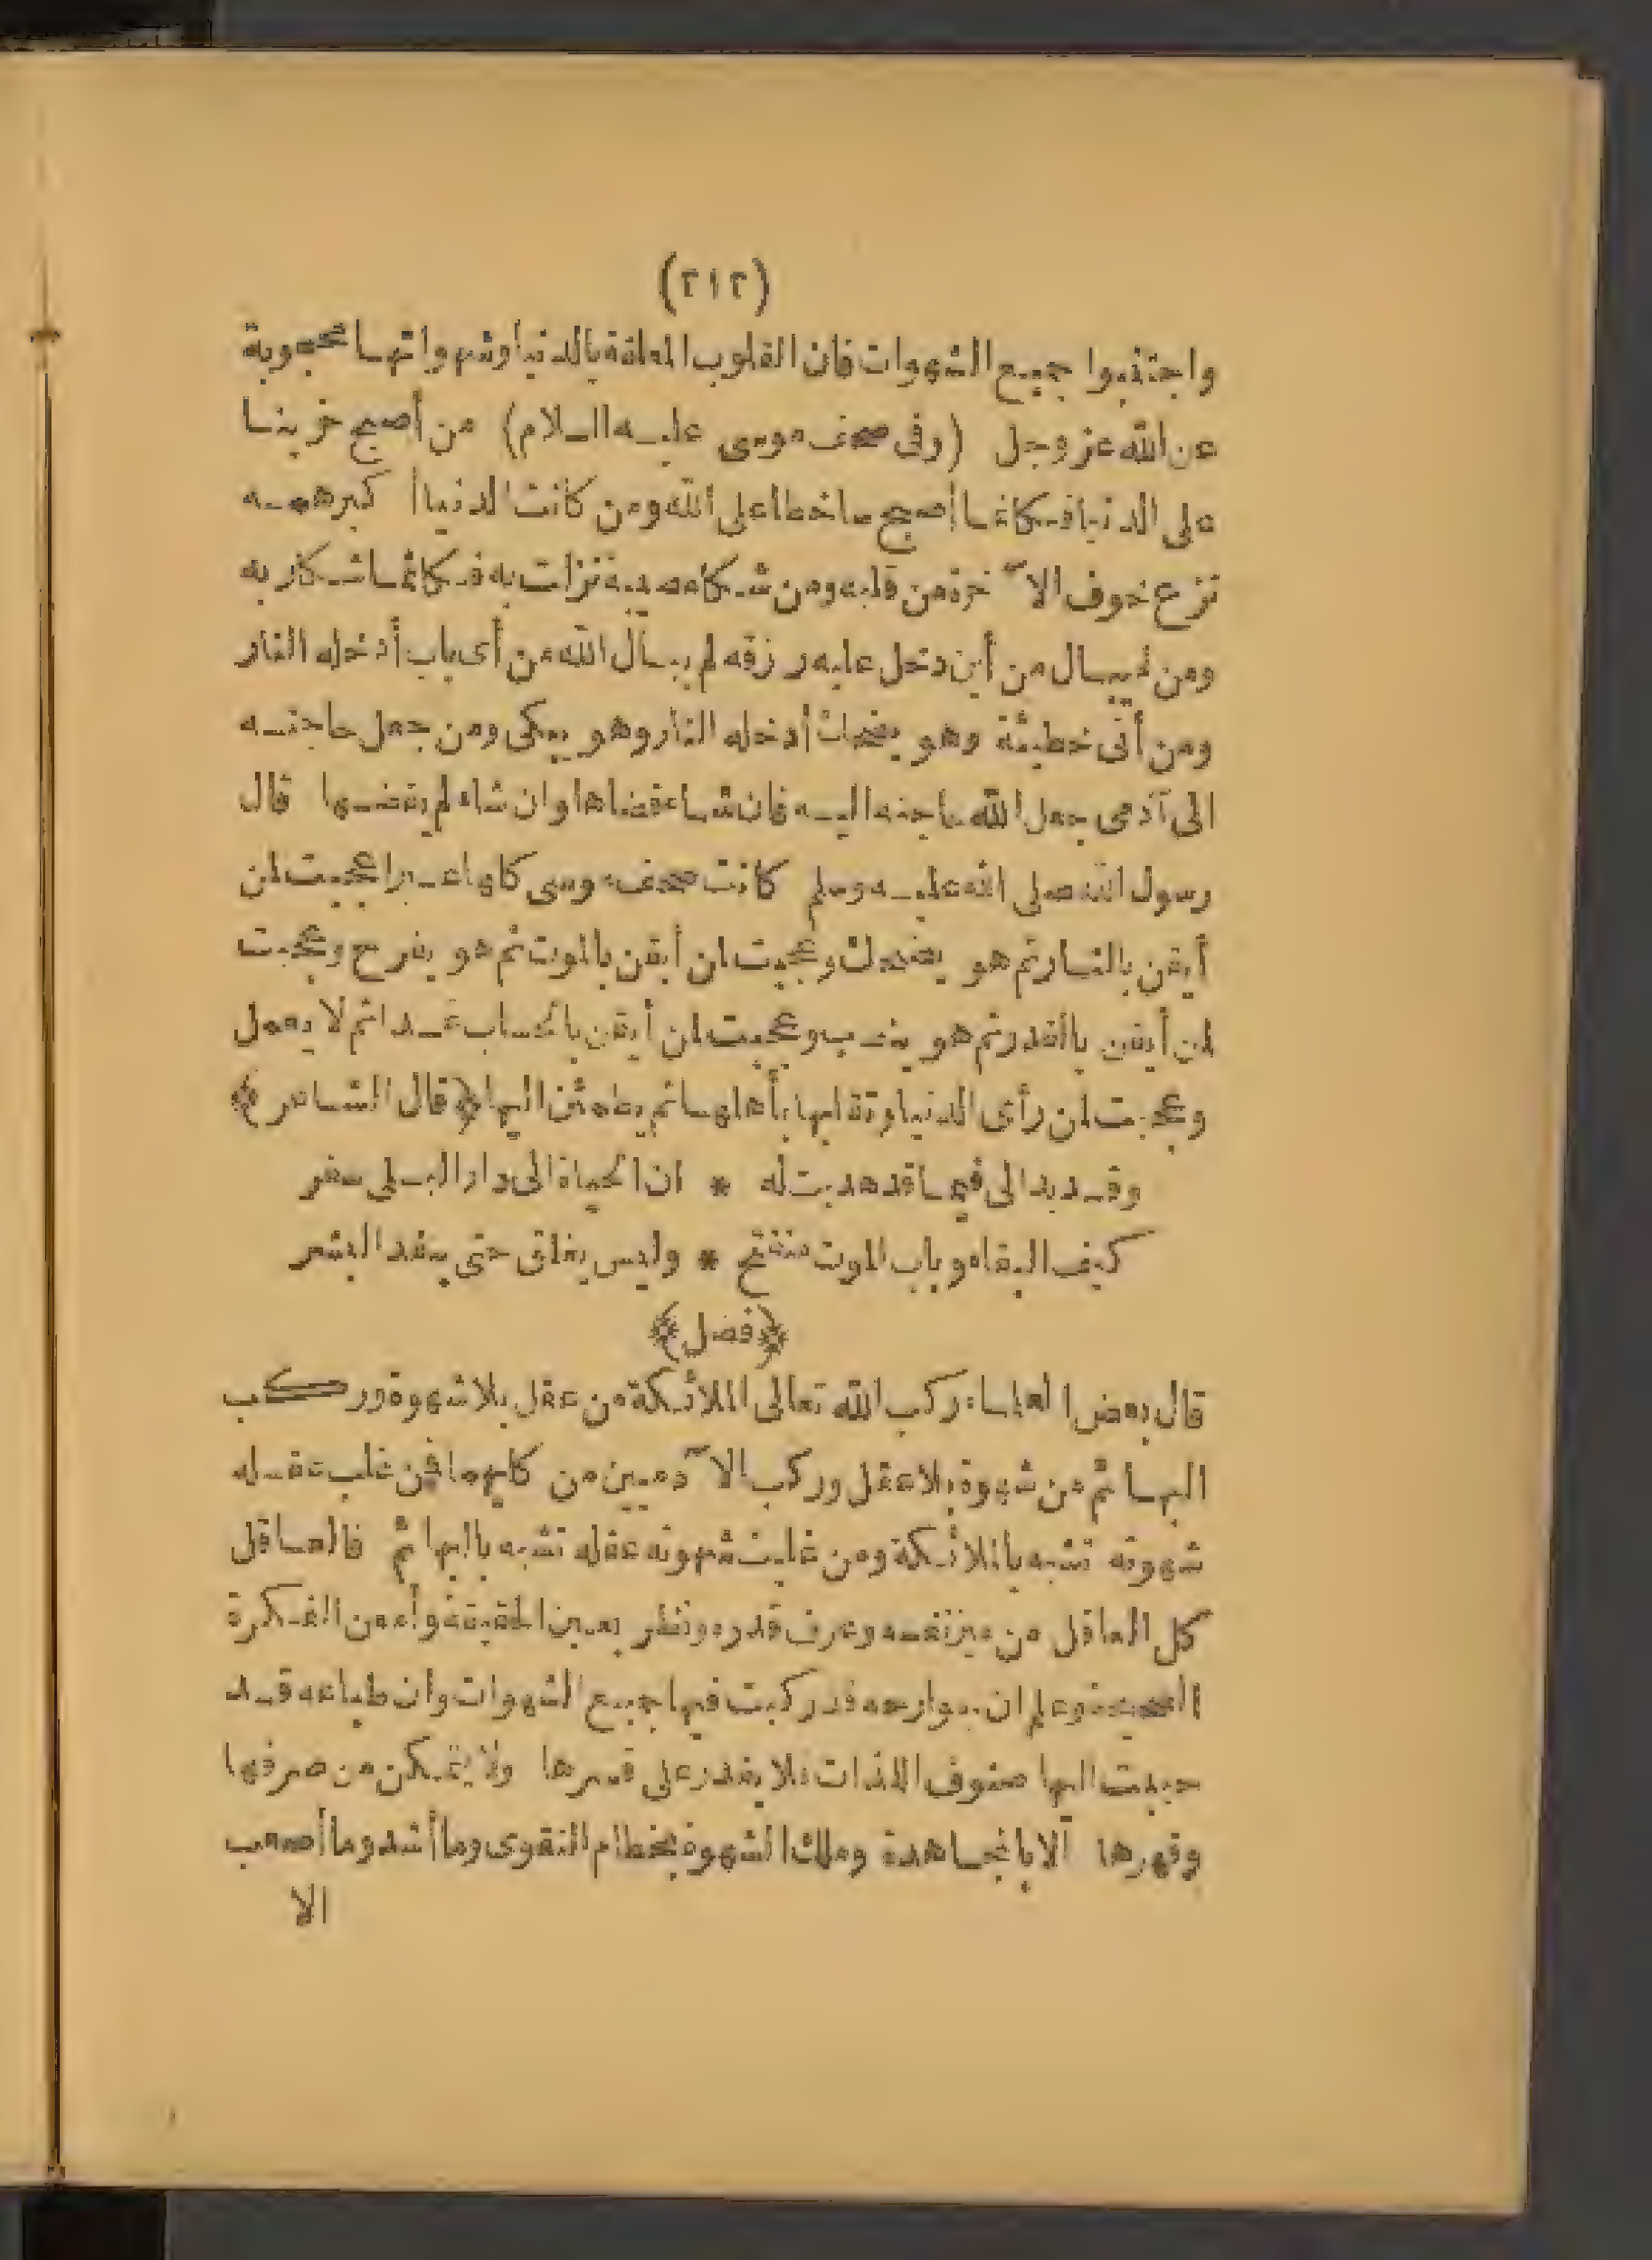 (٢١٢)
واجتنبوا جميع الشهوات فان القلوب المعلقة بالدنيا وشهواتها محجوبة
عن الله عز وجل (وفى صحف موسى عليه السلام) من أصبح حزينا
على الدنيا فكانما أصبح ساخطا على الله ومن كانت الدنيا أكبر همه
نزع خوف الآخرة من قلبه ومن شكا مصيبة نزلت به فكانما شكا ربه
ومن لم يبال من أين دخل عليه رزقه لم يبال الله من أى باب أدخله النار
ومن أتى خطيئة وهو يضحك أدخله النار وهو يبكى ومن جعل حاجته
الى آدمى جعل الله حاجته اليه فان شاء قضاها وان شاء لم يقضها قال
رسول الله صلى الله عليه وسلم كانت صحف موسى كلها عبرا عجبت لمن
أيقن بالنار ثم هو يضحك وعجبت لمن أيقن بالموت ثم هو يفرح وعجبت
لمن أيقن بالقدر ثم هو ينصب وعجبت لمن أيقن بالحساب غدا ثم لا يعمل
وعجبت لمن رأى الدنيا وتقلبها بأهلها ثم يطمئن اليها ﴿قال الشاعر﴾
وقد بدا لى فيما قد هديت له * ان الحياة الى دار البلى سفر
كيف البقاء وباب الموت منفتح * وليس يغلق حتى ينفد البشر
﴿فصل﴾
قال بعض العلماء ركب الله تعالى الملائكة من عقل بلا شهوة وركب
البهائم من شهوة بلا عقل وركب الآدميين من كليهما فمن غلب عقله
شهوته تشبه بالملائكة ومن غلبت شهوته عقله تشبه بالبهائم فالعاقل
كل العاقل من ميز نفسه وعرف قدره ونظر بعين الحقيقة وأمعن الفكرة
الصحيحة وعلم ان جوارحه قد ركبت فيها جميع الشهوات وان طباعه قد
حببت اليها صنوف اللذات فلا يقدر على قسرها ولا يتمكن من صرفها
وقهرها الا بالمجاهدة وملك الشهوة بخطام التقوى وما أشد وما أصعب
الا